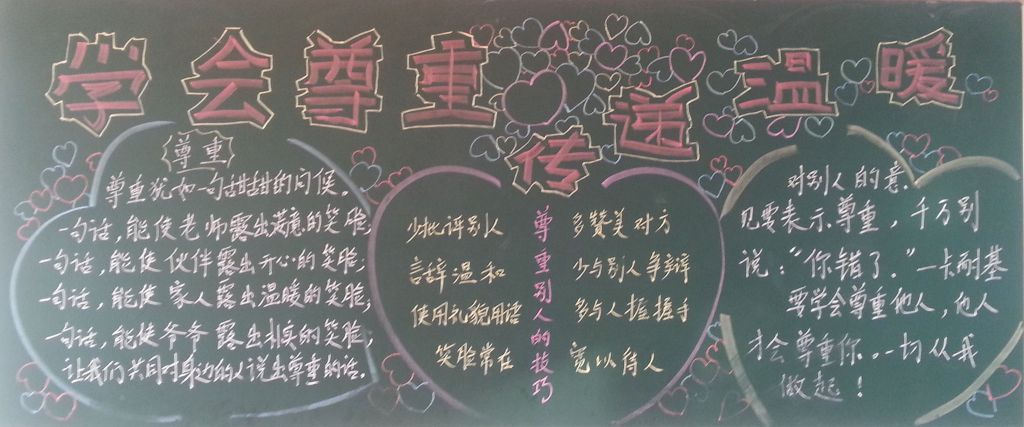 学会尊重
传递温暖
尊重
尊重犹如一句甜甜的问候。
一句话,能使老师露出满意的笑脸;
一句话,能使伙伴露出开心的笑脸;
一句话,能使家人露出温暖的笑脸;
一句话,能使爷爷露出扑实的笑脸;
让我们共同对身边的人说出尊重的话。
尊重别人的技巧
少批评别人
言辞温和
使用礼貌用语
笑脸常在
多赞美对方
少与别人争辩
多与人握握手
宽以待人
对别人的意
见要表示尊重,千万别
说:“你错了。”—卡耐基
要学会尊重他人,他人
才会尊重你。一切从我
做起!